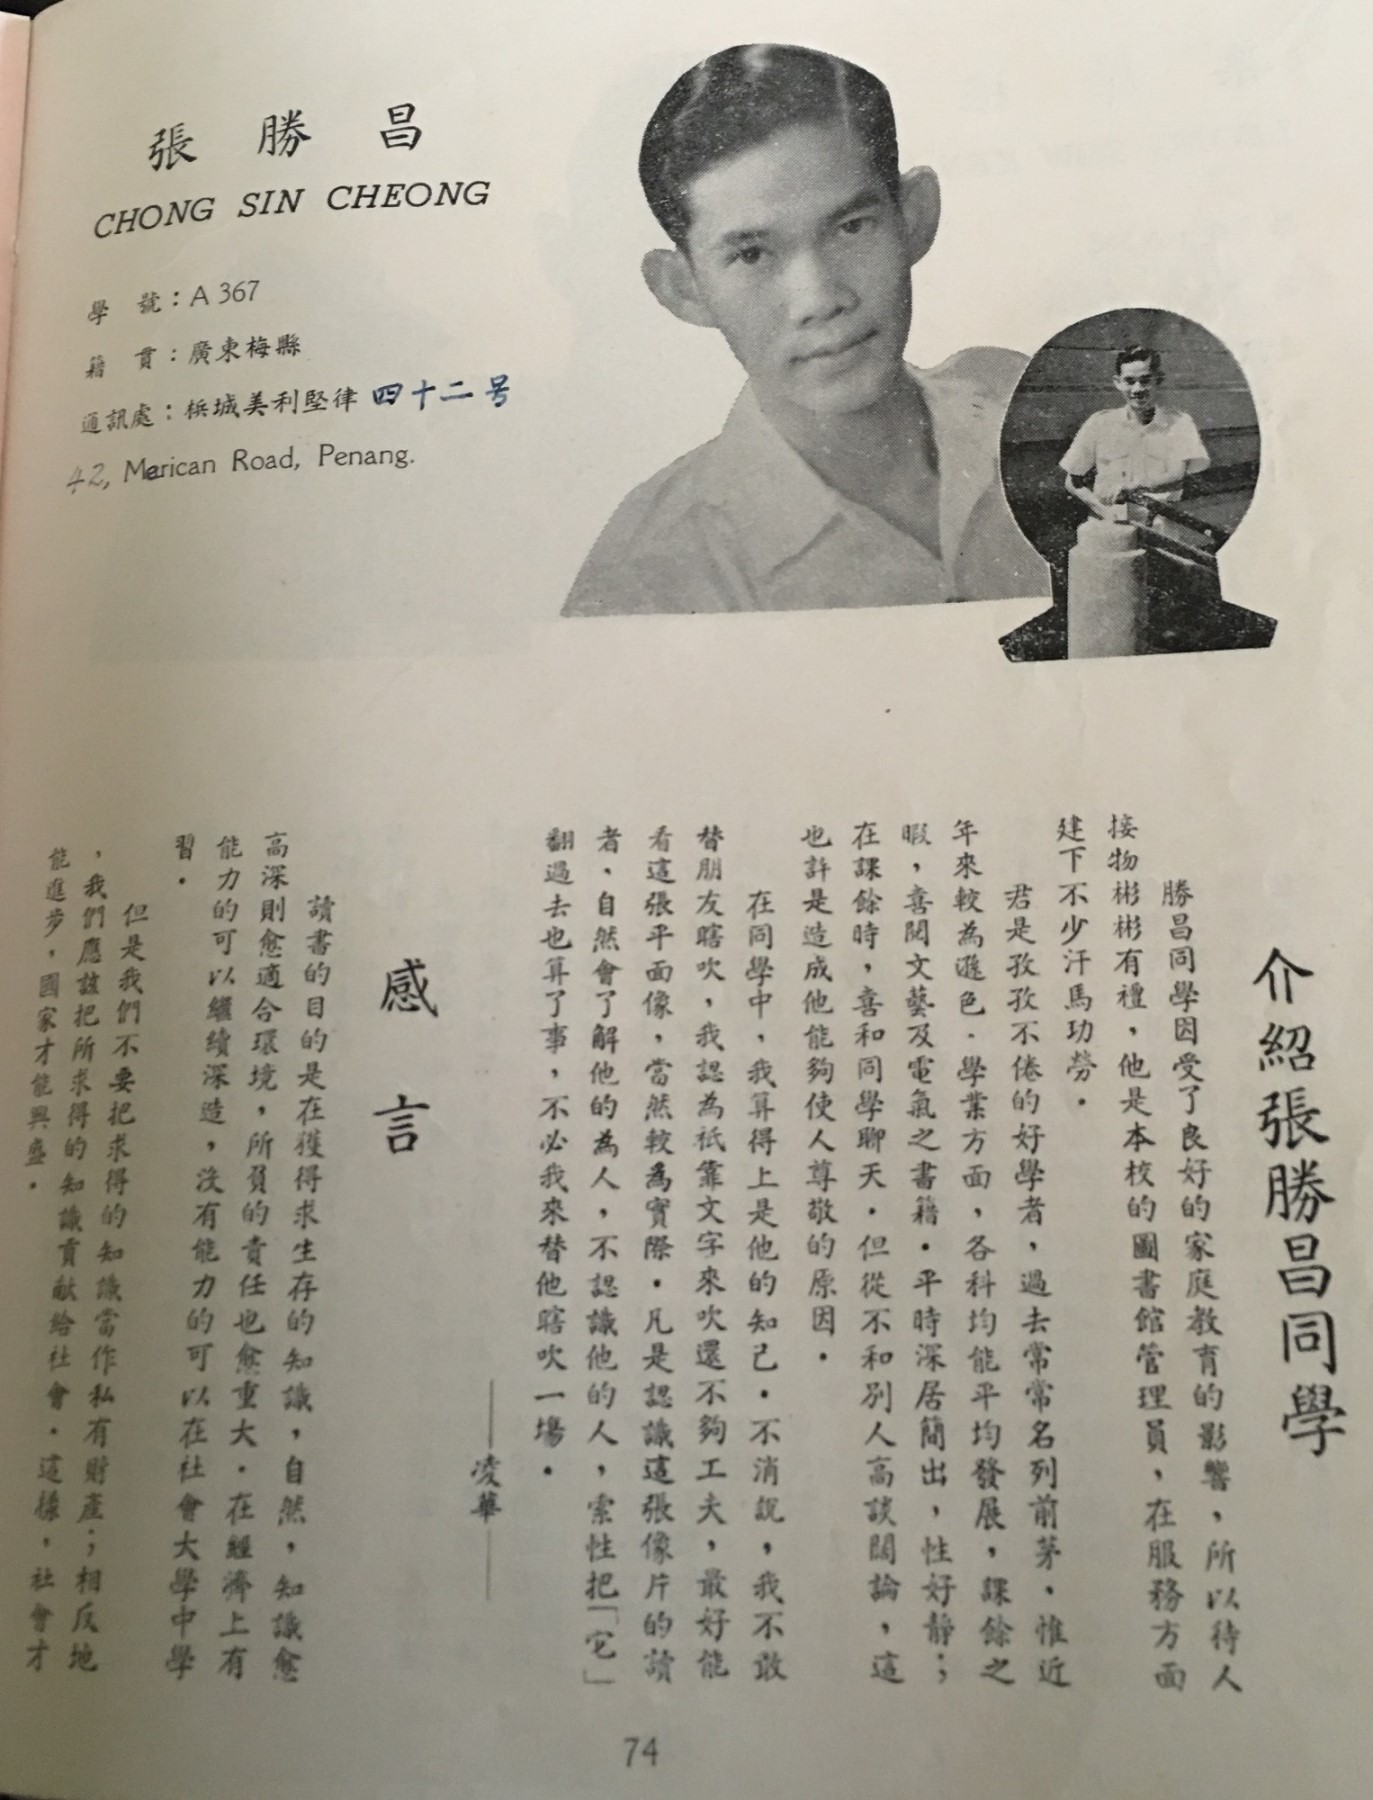 張勝昌
CHONG SIN CHEONG
學號：A 367
籍貫：廣東梅縣
通訊處：梹城美利堅律 四十二号
42, Merican Road, Penang.
介紹張勝昌同學
勝昌同學因受了良好的家庭教育的影響，所以待人
接物彬彬有禮，他是本校的圖書館管理員，在服務方面
建下不少汗馬功勞．
君是孜孜不倦的好學者，過去常常名列前茅．惟近
年來較為遜色．學業方面，各科均能平均發展，課餘之
暇，喜閱文藝及電氣之書籍．平時深居簡出，性好靜；
在課餘時，喜和同學聊天．但從不和別人高談闊論，這
也許是造成他能夠使人尊敬的原因．
在同學中，我算得上是他的知己．不消說，我不敢
替朋友瞎吹，我認為祇靠文字來吹還不夠工夫，最好能
看這張平面像，當然較為實際．凡是認識這張像片的讀
者、自然會了解他的為人，不認識他的人，索性把「它」
翻過去也算了事，不必我來替他瞎吹一場．
——凌華——
感言
讀書的目的是在獲得求生存的知識，自然，知識愈
高深則愈適合環境，所負的責任也愈重大．在經濟上有
能力的可以繼續深造，沒有能力的可以在社會大學中學
習．
但是我們不要把求得的知識當作私有財產；相反地
，我們應該把所求得的知識貢献給社會．這樣，社會才
能進步，國家才能興盛．
74